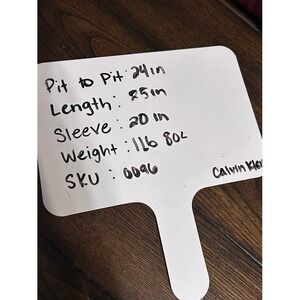 Pit to Pit: 24in
Length: 25in
Sleeve: 20 in
Weight: 1lb 8oz
SKU: 0096
Calvin Klein